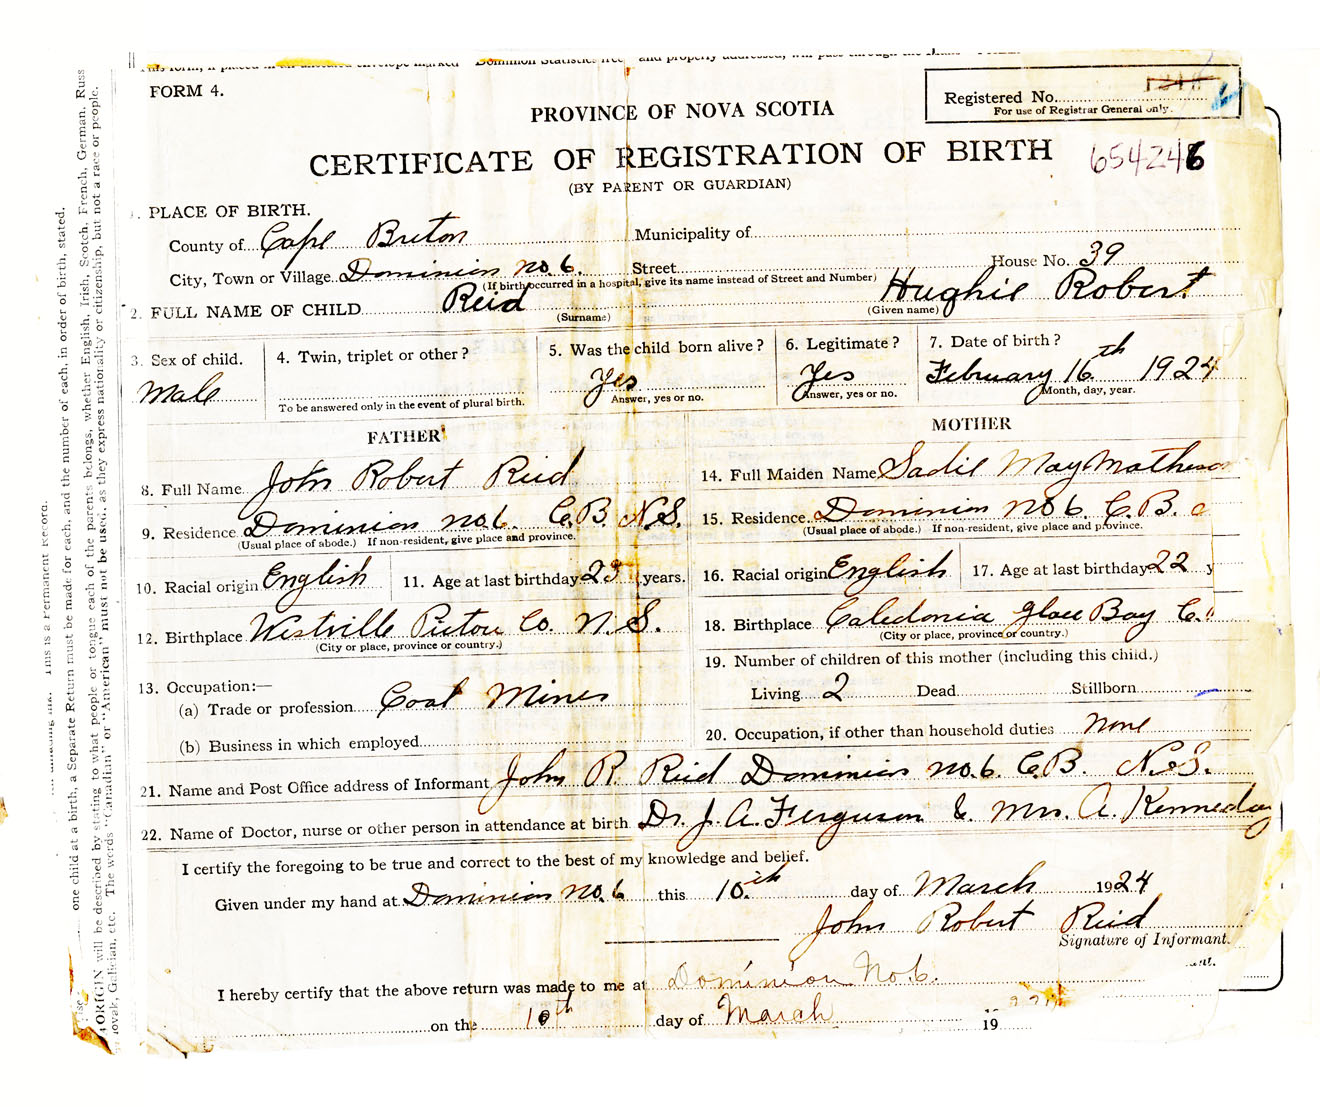 FORM 4.
Registered No.
For use of Registrar General only.
PROVINCE OF NOVA SCOTIA
CERTIFICATE OF REGISTRATION OF BIRTH 654246
(BY PARENT OR GUARDIAN)
1. PLACE OF BIRTH.
County of Cape Breton Municipality of
City, Town or Village Dominion No. 6. Street House No. 39
(If birth occurred in a hospital, give its name instead of Street and Number)
2. FULL NAME OF CHILD Reid Hughie Robert
(Surname) (Given name)
3. Sex of child. 4. Twin, triplet or other? 5. Was the child born alive? 6. Legitimate? 7. Date of birth?
Male Yes Yes February 16th 1924
To be answered only in the event of plural birth. Answer, yes or no. Answer, yes or no. Month, day, year.
FATHER MOTHER
8. Full Name John Robert Reid 14. Full Maiden Name Sadie May Matheson
9. Residence Dominion No. 6. C.B. N.S. 15. Residence Dominion No 6. C.B.
(Usual place of abode.) If non-resident, give place and province. (Usual place of abode.) If non-resident, give place and province.
10. Racial origin English 11. Age at last birthday years. 16. Racial origin English 17. Age at last birthday 22 y
12. Birthplace Westville Pictou Co. N.S. 18. Birthplace Caledonia Glace Bay C.
(City or place, province or country.) (City or place, province or country.)
13. Occupation:— 19. Number of children of this mother (including this child.)
(a) Trade or profession Coal Miner Living 2 Dead Stillborn
(b) Business in which employed 20. Occupation, if other than household duties none
21. Name and Post Office address of Informant John R. Reid Dominion No. 6. C.B. N.S.
22. Name of Doctor, nurse or other person in attendance at birth Dr. J. A. Ferguson & Mrs. A. Kennedy
I certify the foregoing to be true and correct to the best of my knowledge and belief.
Given under my hand at Dominion No. 6 this 10th day of March 1924
John Robert Reid
Signature of Informant.
I hereby certify that the above return was made to me at Dominion No 6.
on the 10th day of March 19
one child at a birth, a Separate Return must be made for each, and the number of each, in order of birth, stated.
ORIGIN will be described by stating to what people or tongue each of the parents belongs, whether English, Irish, Scotch, French, German, Russ
ovak, Galician, etc. The words "Canadian" or "American" must not be used, as they express nationality or citizenship, but not a race or people.